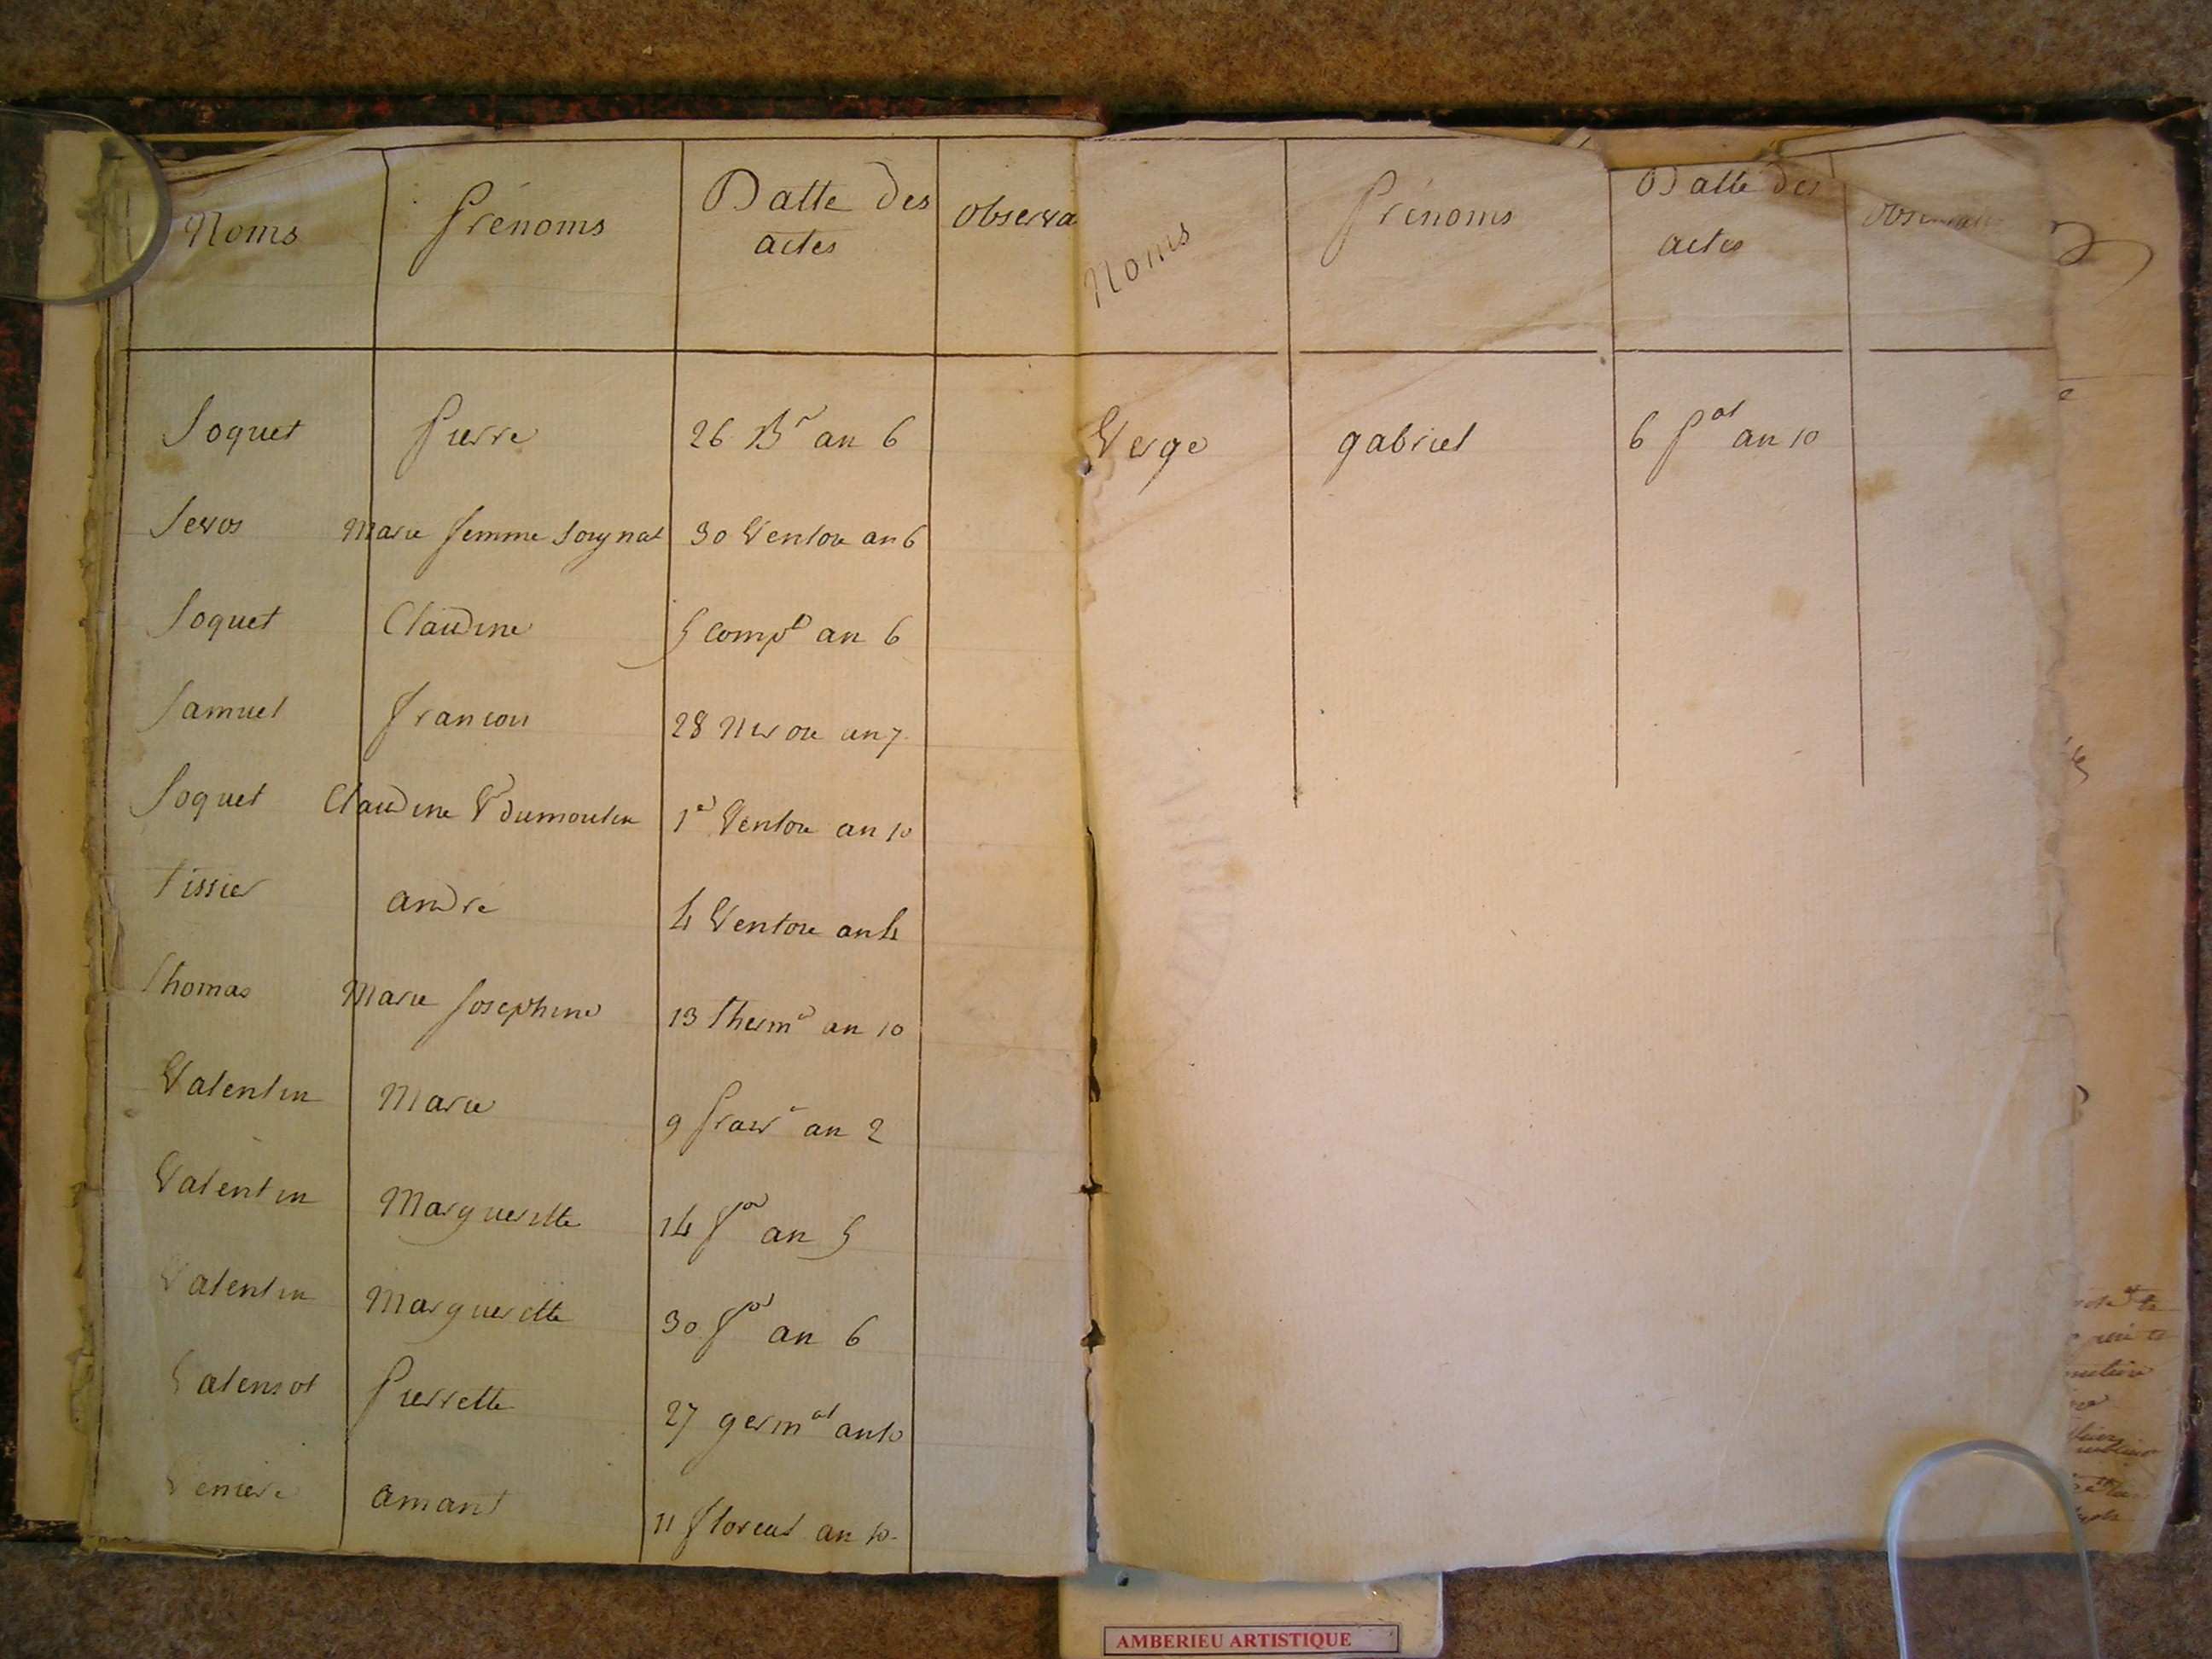 Noms Prénoms Datte Des Observa
actes
Soquet Pierre 26 Br an 6
Servos Marie femme Soignat 30 Ventose an 6
Soquet Claudine 5 Compd an 6
Samuel François 28 Nivose an 7
Soquet Claudine Ve Dumoulin 1er Ventose an 10
Tissier andré 4 Ventose an 4
Thomas Marie Josephine 13 Thermr an 10
Valentin Marie 9 Prair an 2
Valentin Margueritte 14 Pal an 5
Valentin Margueritte 30 Pal an 6
Valensot Pierrette 27 germal an 10
Veniere amant 11 floreal an 10
Noms Prénoms Datte des
actes
Verge gabriel 6 Pal an 10
AMBERIEU ARTISTIQUE